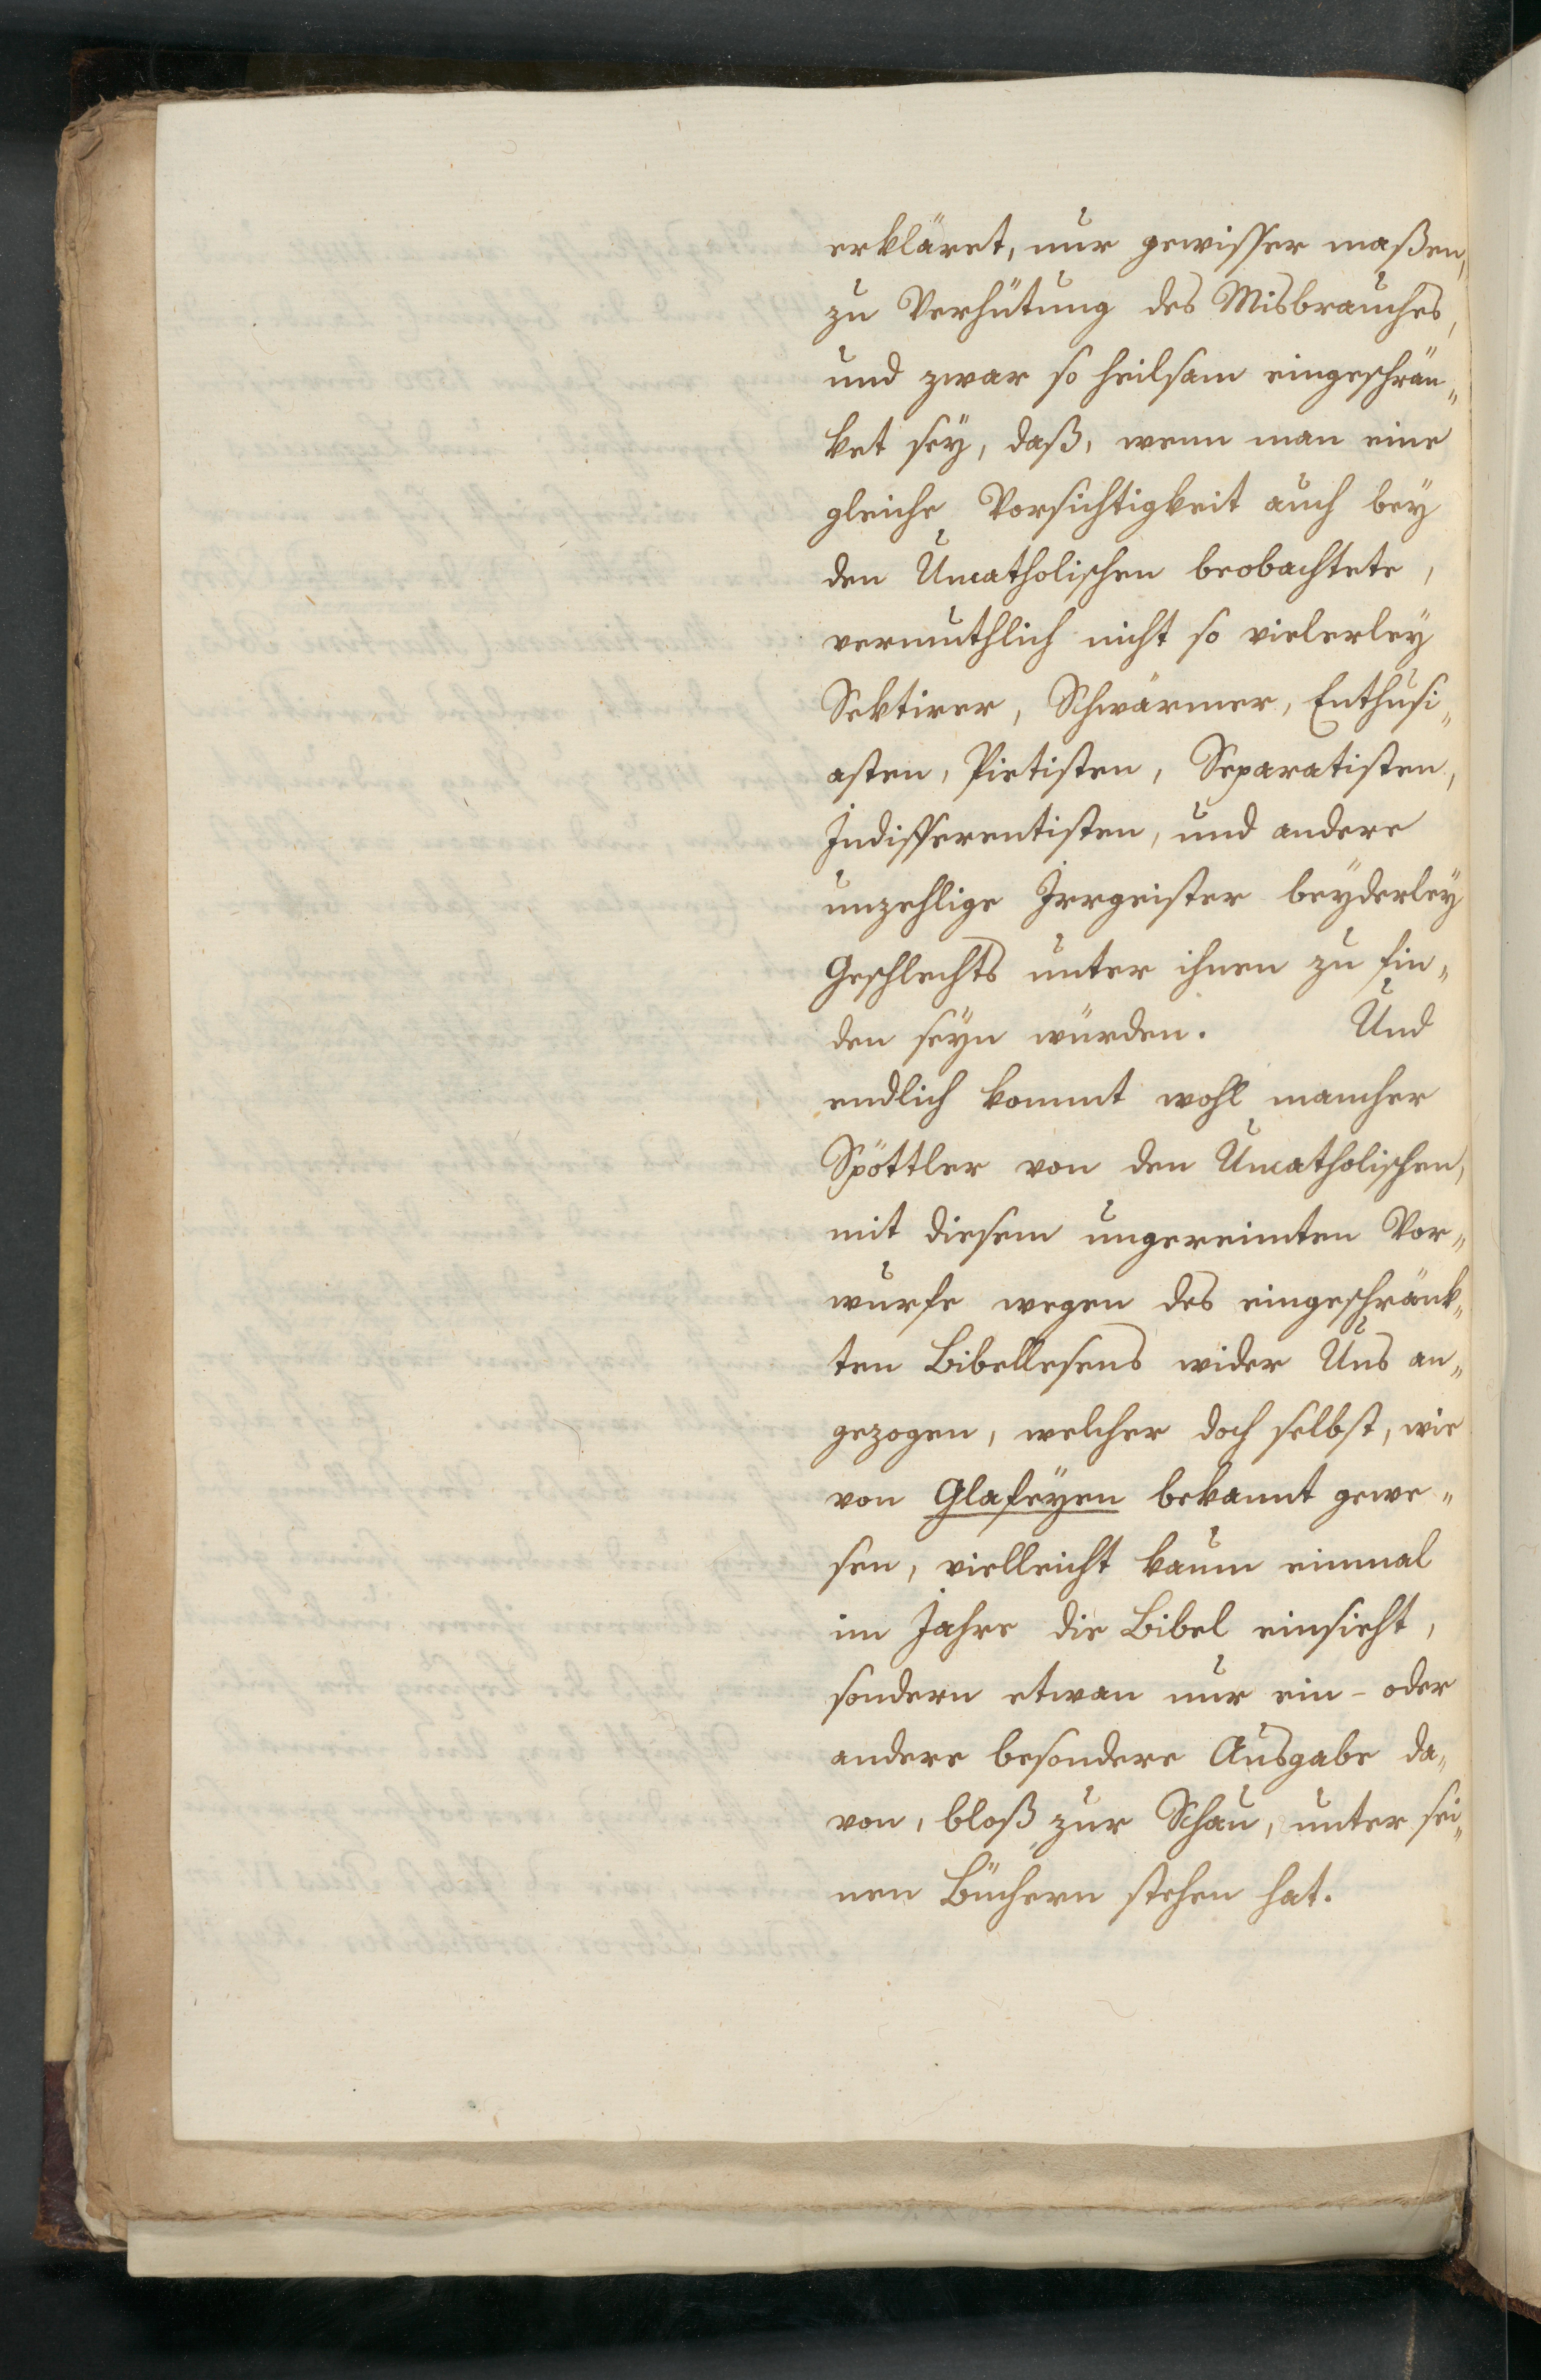 erkläret, nur gewisser maßen,
zu Verhütung des Misbrauches,
und zwar so heilsam eingeschrän„
ket seÿ, daß, wenn man eine
gleiche Vorsichtigkeit auch beÿ
den Uncatholischen beobachtete,
vermuthlich nicht so vielerleÿ
Sektirer, Schwärmer, Enthusi„
asten, Pietisten, Separatisten,
Indifferentisten, und andere
unzehlige Irrgeister beÿderleÿ
Geschlechts unter ihnen zu fin„
den seÿn würden. Und
endlich kommt wohl mancher
Spöttler von den Uncatholischen,
mit diesem ungereimten Vor„
wurfe wegen des eingeschränk„
ten Bibellesens wider Uns an„
gezogen, welcher doch selbst, wie
von Glafeÿen bekannt gewe„
sen, vielleicht kaum einmal
im Jahre die Bibel einsieht,
sondern etwan nur ein- oder
andere besondere Ausgabe da„
von, bloß zur Schau, unter sei„
nen Büchern stehen hat.